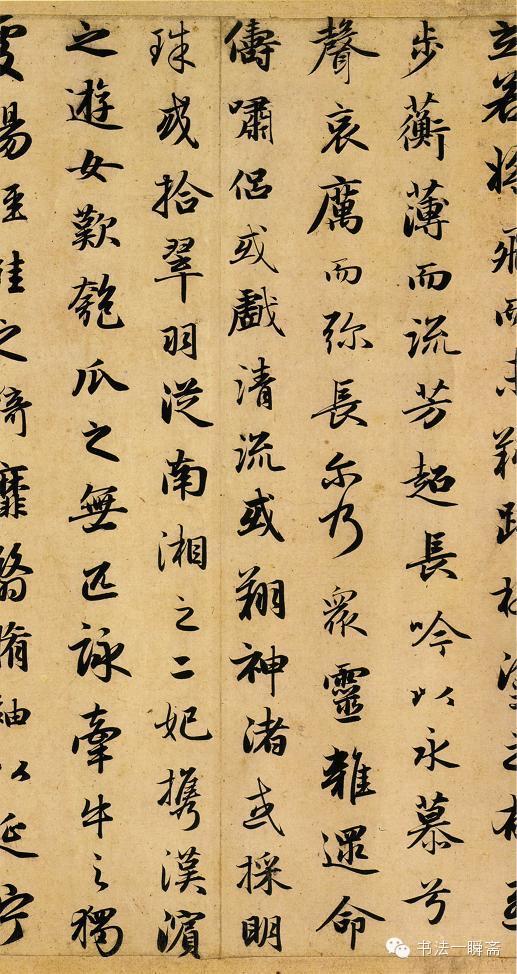 立若將飛而未翔踐椒塗之郁烈
步蘅薄而流芳超長吟以永慕兮
聲哀厲而弥長尔乃眾靈雜遝命
儔嘯侶或戲清流或翔神渚或採明
珠或拾翠羽從南湘之二妃攜漢濱
之遊女歎匏瓜之無匹詠牽牛之獨
處揚輕袿之綺靡翳脩袖以延佇
书法一瞬斋